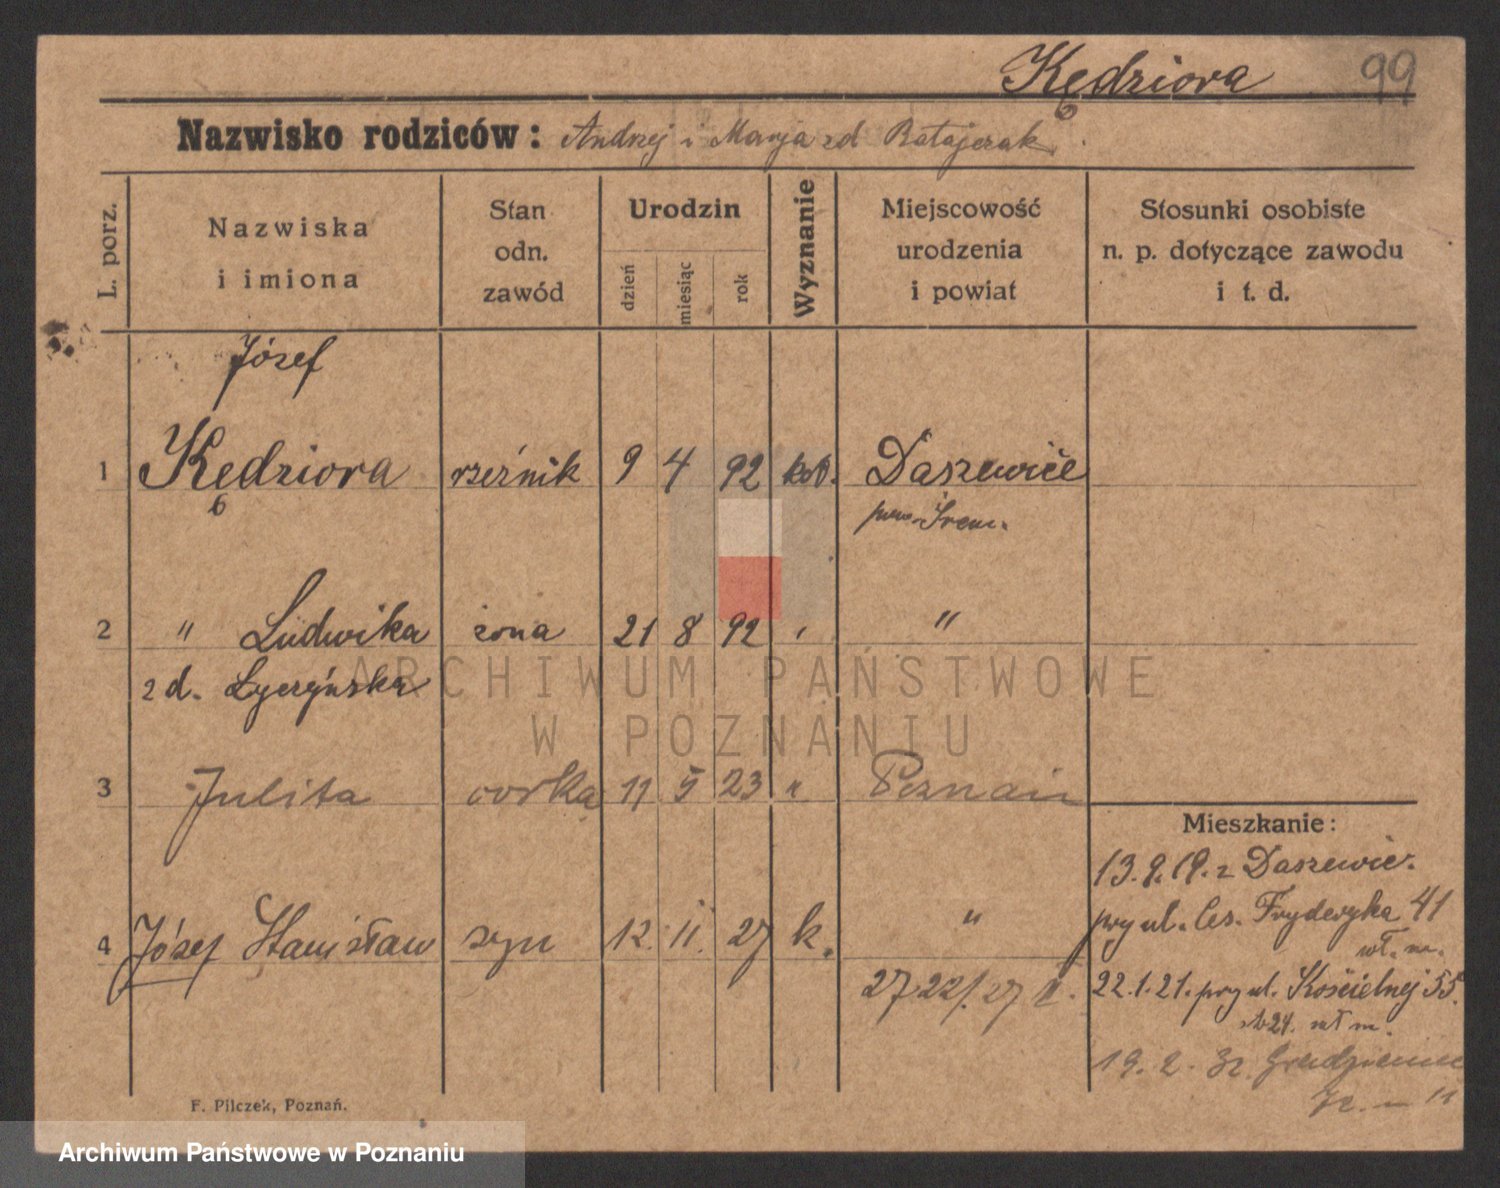 Kędziora 99
Nazwisko rodziców: Andrzej i Marja zd Ratajczak
L. porz.
Nazwiska i imiona
Stan odn. zawód
Urodzin
dzień
miesiąc
rok
Wyznanie
Miejscowość urodzenia i powiat
Stosunki osobiste n. p. dotyczące zawodu i t. d.
Józef
1 Kędziora rzeźnik 9 4 92 kat. Daszewice
pow. Śrem.
2 " Ludwika żona 21 8 92 " "
z d. Łyczyńska
ARCHIWUM PAŃSTWOWE
W POZNANIU
3 Julita córka 11 5 23 " Poznań
4 Józef Stanisław syn 12. 11. 27 k. "
Mieszkanie:
13.9.19. z Daszewic.
przy ul. Ces. Fryderyka 41
wł. m.
22.1.21. przy ul. Kościelnej 55.
wł m.
19. 2.
F. Pilczek, Poznań.
Archiwum Państwowe w Poznaniu